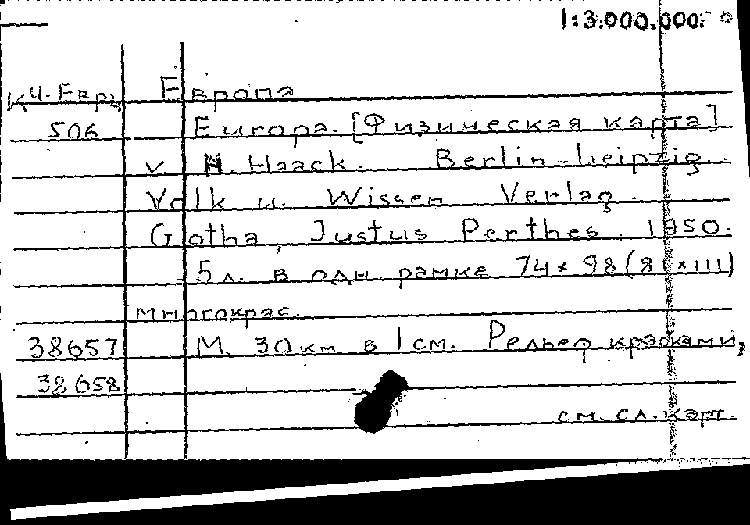 1:3.000.000.
К4-Евр. Европа
506 Europa. [Физическая карта]
v. H. Haack. Berlin-Leipzig.
Volk u. Wissen Verlag.
Gotha, Justus Perthes. 1950.
5 л. в одн рамке 74×98 (86×111)
многокрас.
38657 М. 30 км в 1 см. Рельеф красками,
38658
см. сл. карт.